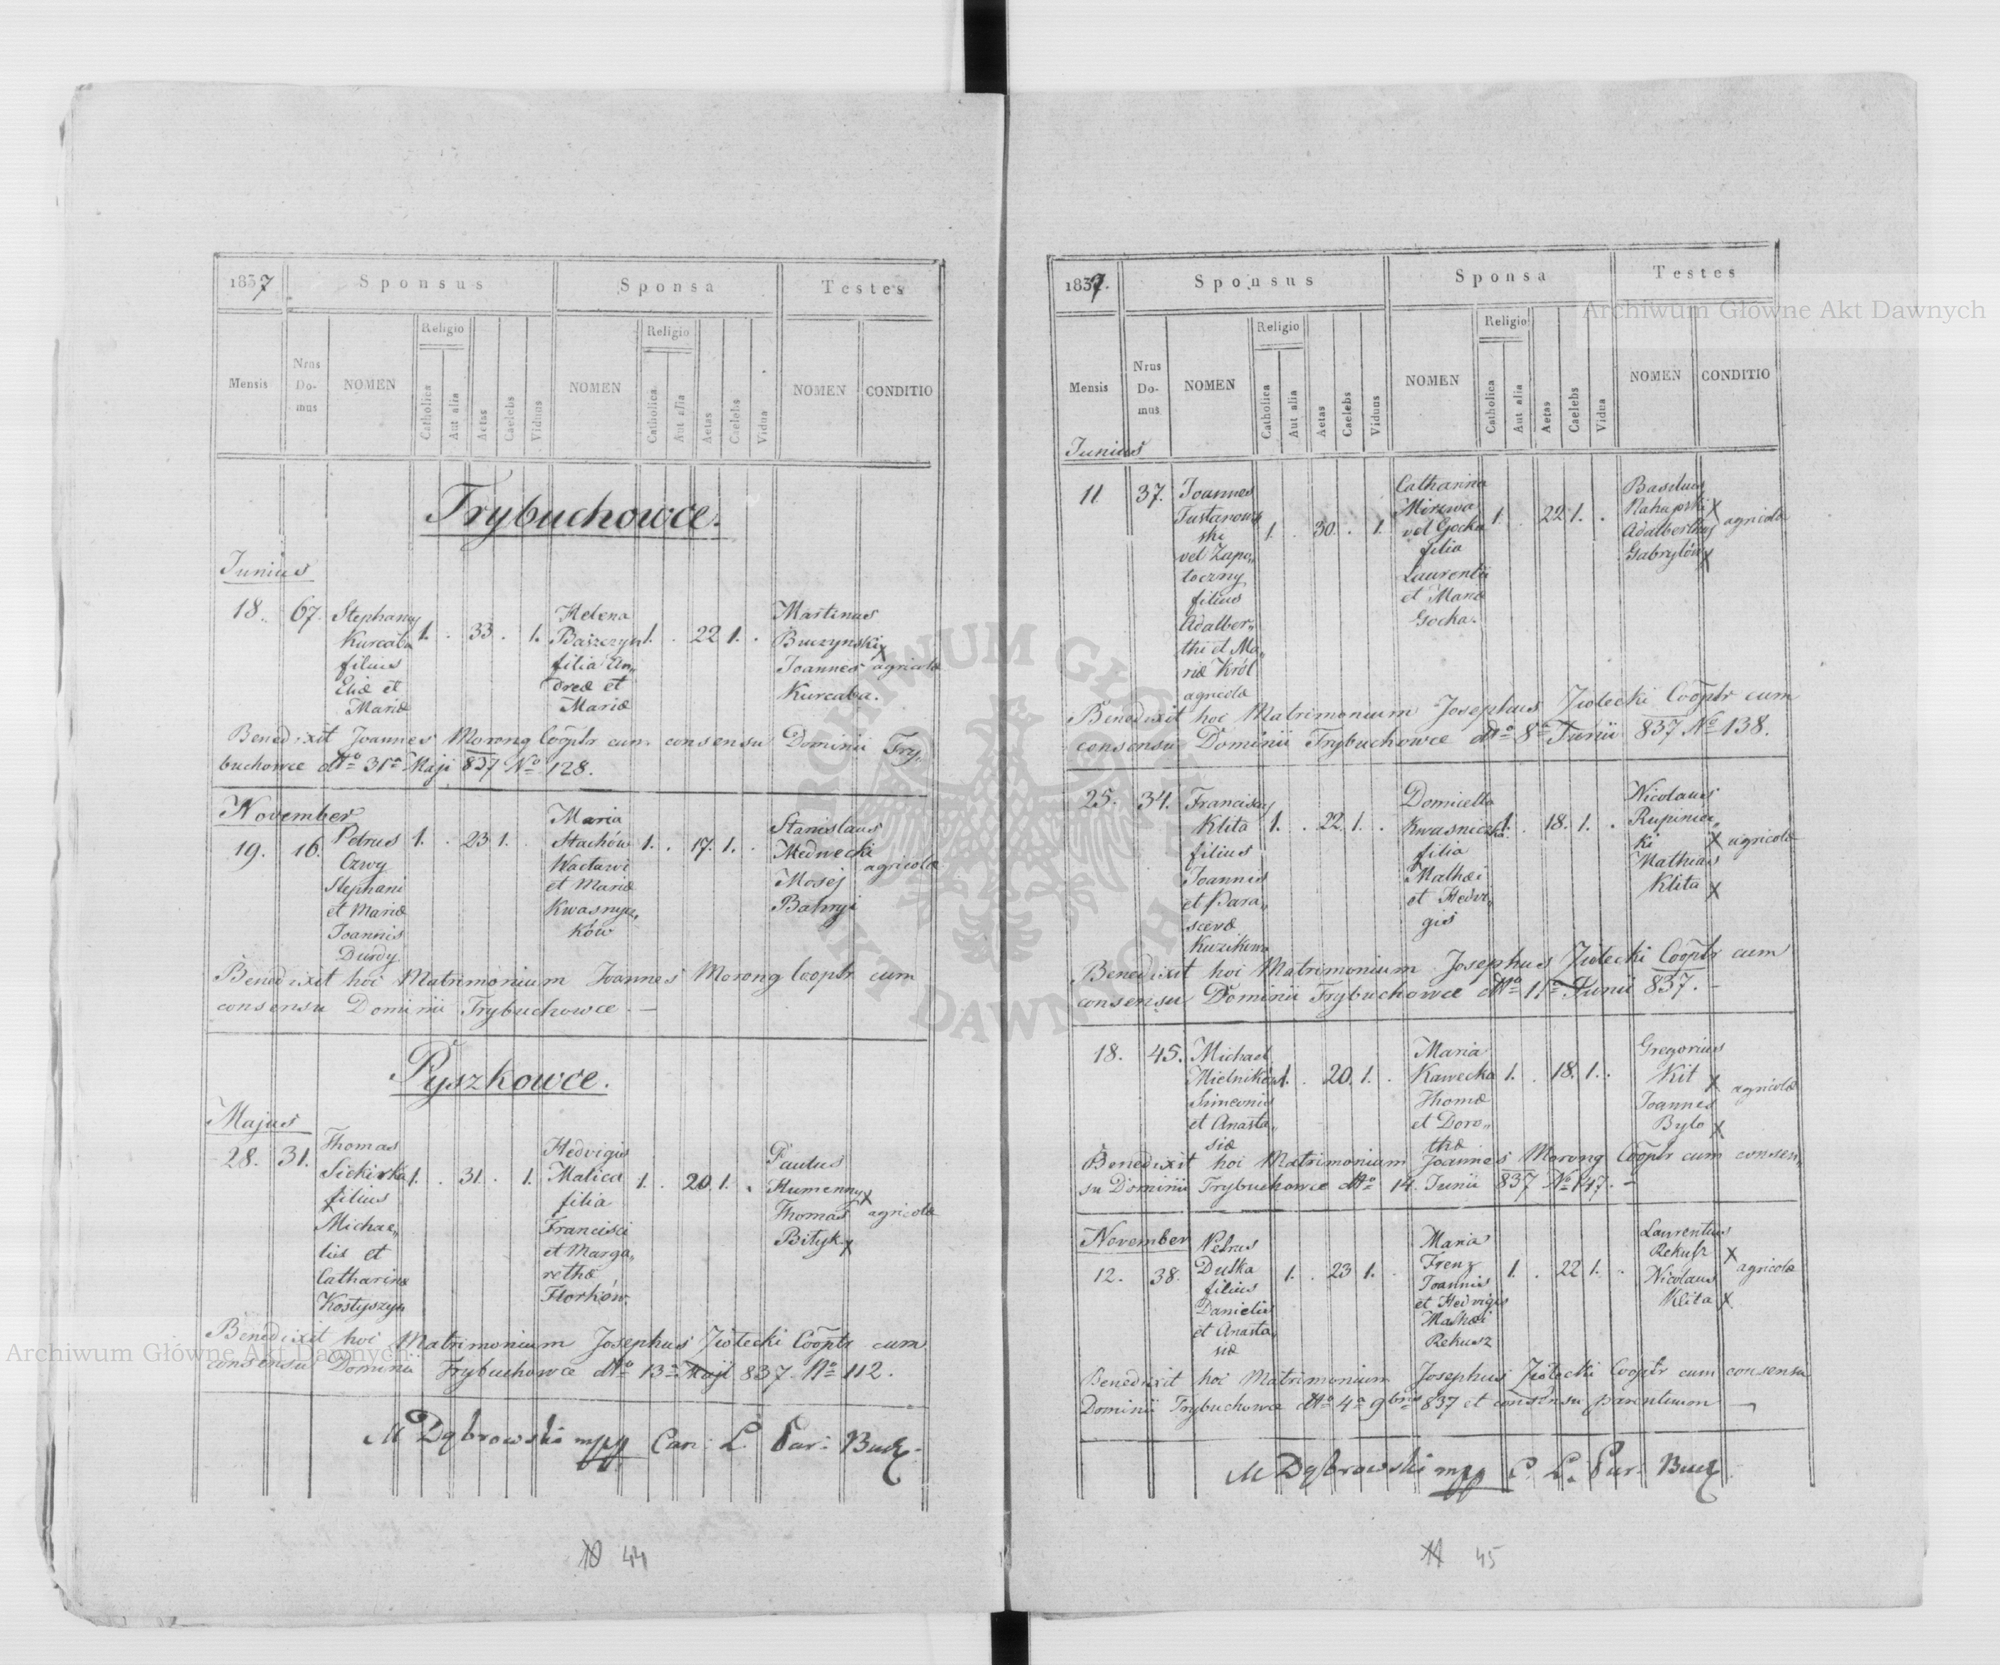 1837
Sponsus
Sponsa
Testes
Religio
Religio
Mensis
Nrus
Do-
mus
NOMEN
Catholica
Aut alia
Aetas
Caelebs
Viduus
NOMEN
Catholica
Aut alia
Aetas
Caelebs
Vidua
NOMEN
CONDITIO
Trybuchowce.
Junius
18. 67.
Stephanus
Kurcaba
filius
Eliæ et
Mariæ
1. . 33 . 1.
Helena
Baszczyn
filia An„
dreæ et
Mariæ
1. . 22 1. .
Martinus
Buczynski x
Joannes
Kurcaba.
agricolæ
Benedixit Joannes Morong Cooptr cum consensu Dominii Try„
buchowce dtto 31a Maji 837 No 128.
November
19. 16.
Petrus
Czwy
Stephani
et Mariæ
Joannis
Durdy
1. . 23 1. .
Maria
Stachów
Wacławi
et Mariæ
Kwasnyc„
ków
1. . 17. 1. .
Stanislaus
Medwecki
Mosej
Bahryi
agricolæ
Benedixit hoc Matrimonium Joannes Morong Cooptr cum
consensu Dominii Trybuchowce. —
Pyszkowce.
Majus
28. 31.
Thomas
Siekirka
filius
Michae„
lis et
Catharinæ
Kostyszyn
1. . 31. . 1.
Hedvigis
Malica
filia
Francisci
et Marga„
rethæ
Florków.
1. . 20 1. .
Paulus
Humenny x
Thomas
Biłyk x
agricolæ
Benedixit hoc Matrimonium Josephus Ziołecki Cooptr cum
consensu Dominii Trybuchowce dtto 13a Maji 837. No 112.
M Dąbrowski mpp Can: L. Par: Bucz.
10 44
1837.
Sponsus
Sponsa
Testes
Religio
Religio
Mensis
Nrus
Do-
mus
NOMEN
Catholica
Aut alia
Aetas
Caelebs
Viduus
NOMEN
Catholica
Aut alia
Aetas
Caelebs
Vidua
NOMEN
CONDITIO
Junius
11 37.
Joannes
Tustanow
ski
vel Zapo„
toczny
filius
Adalber„
thi et Ma„
riæ Król
agricolæ
1. . 30. . 1.
Catharina
Mirewa
vel Gocka
filia
Laurentii
et Mariæ
Gocka.
1. . 22 1. .
Basilius
Nahajski x
Adalberthus
Gabrylów x
agricolæ
Benedixit hoc Matrimonium Josephus Ziołecki Cooptr cum
consensu Dominii Trybuchowce dtto 8a Junii 837 No 138.
25. 34.
Franciscus
Klita
filius
Joannis
et Para„
scevæ
Kuzikowa
1. . 22 1. .
Domicella
Kwasniczka
filia
Mathæi
et Hedvi„
gis
1. . 18. 1. .
Nicolaus
ki x
Mathias
Klita x
agricolæ
Benedixit hoc Matrimonium Josephus Ziołecki Cooptr cum
consensu Dominii Trybuchowce dtto 11a Junii 837. –
18. 45.
Michael
Mielników
Simeonis
et Anasta„
siæ
1. . 20 1. .
Maria
Kawecka
Thomæ
et Doro„
theæ
1. . 18. 1. .
Gregorius
Kit x
Joannes
Bylo x
agricolæ
Benedixit hoc Matrimonium Joannes Morong Cooptr cum consen„
su Dominii Trybuchowce dtto 14. Junii 837 No 147. –
November
12. 38.
Petrus
Duska
filius
Danielis
et Anasta„
siæ
1. . 23 1. .
Maria
Frenz
Joannis
et Hedvigis
Mathæi
Rekusz
1. . 22 1. .
Laurentius
Rekusz x
Nicolaus
Klita x
agricolæ
Benedixit hoc Matrimonium Josephus Ziołecki Cooptr cum consensu
Dominii Trybuchowce dtto 4a 9bris 837 et consensu parentum —
M Dąbrowski mpp C. L. Par. Bucz
11 45
Archiwum Główne Akt Dawnych
Archiwum Główne Akt Dawnych
ARCHIWUM GŁÓWNE AKT DAWNYCH